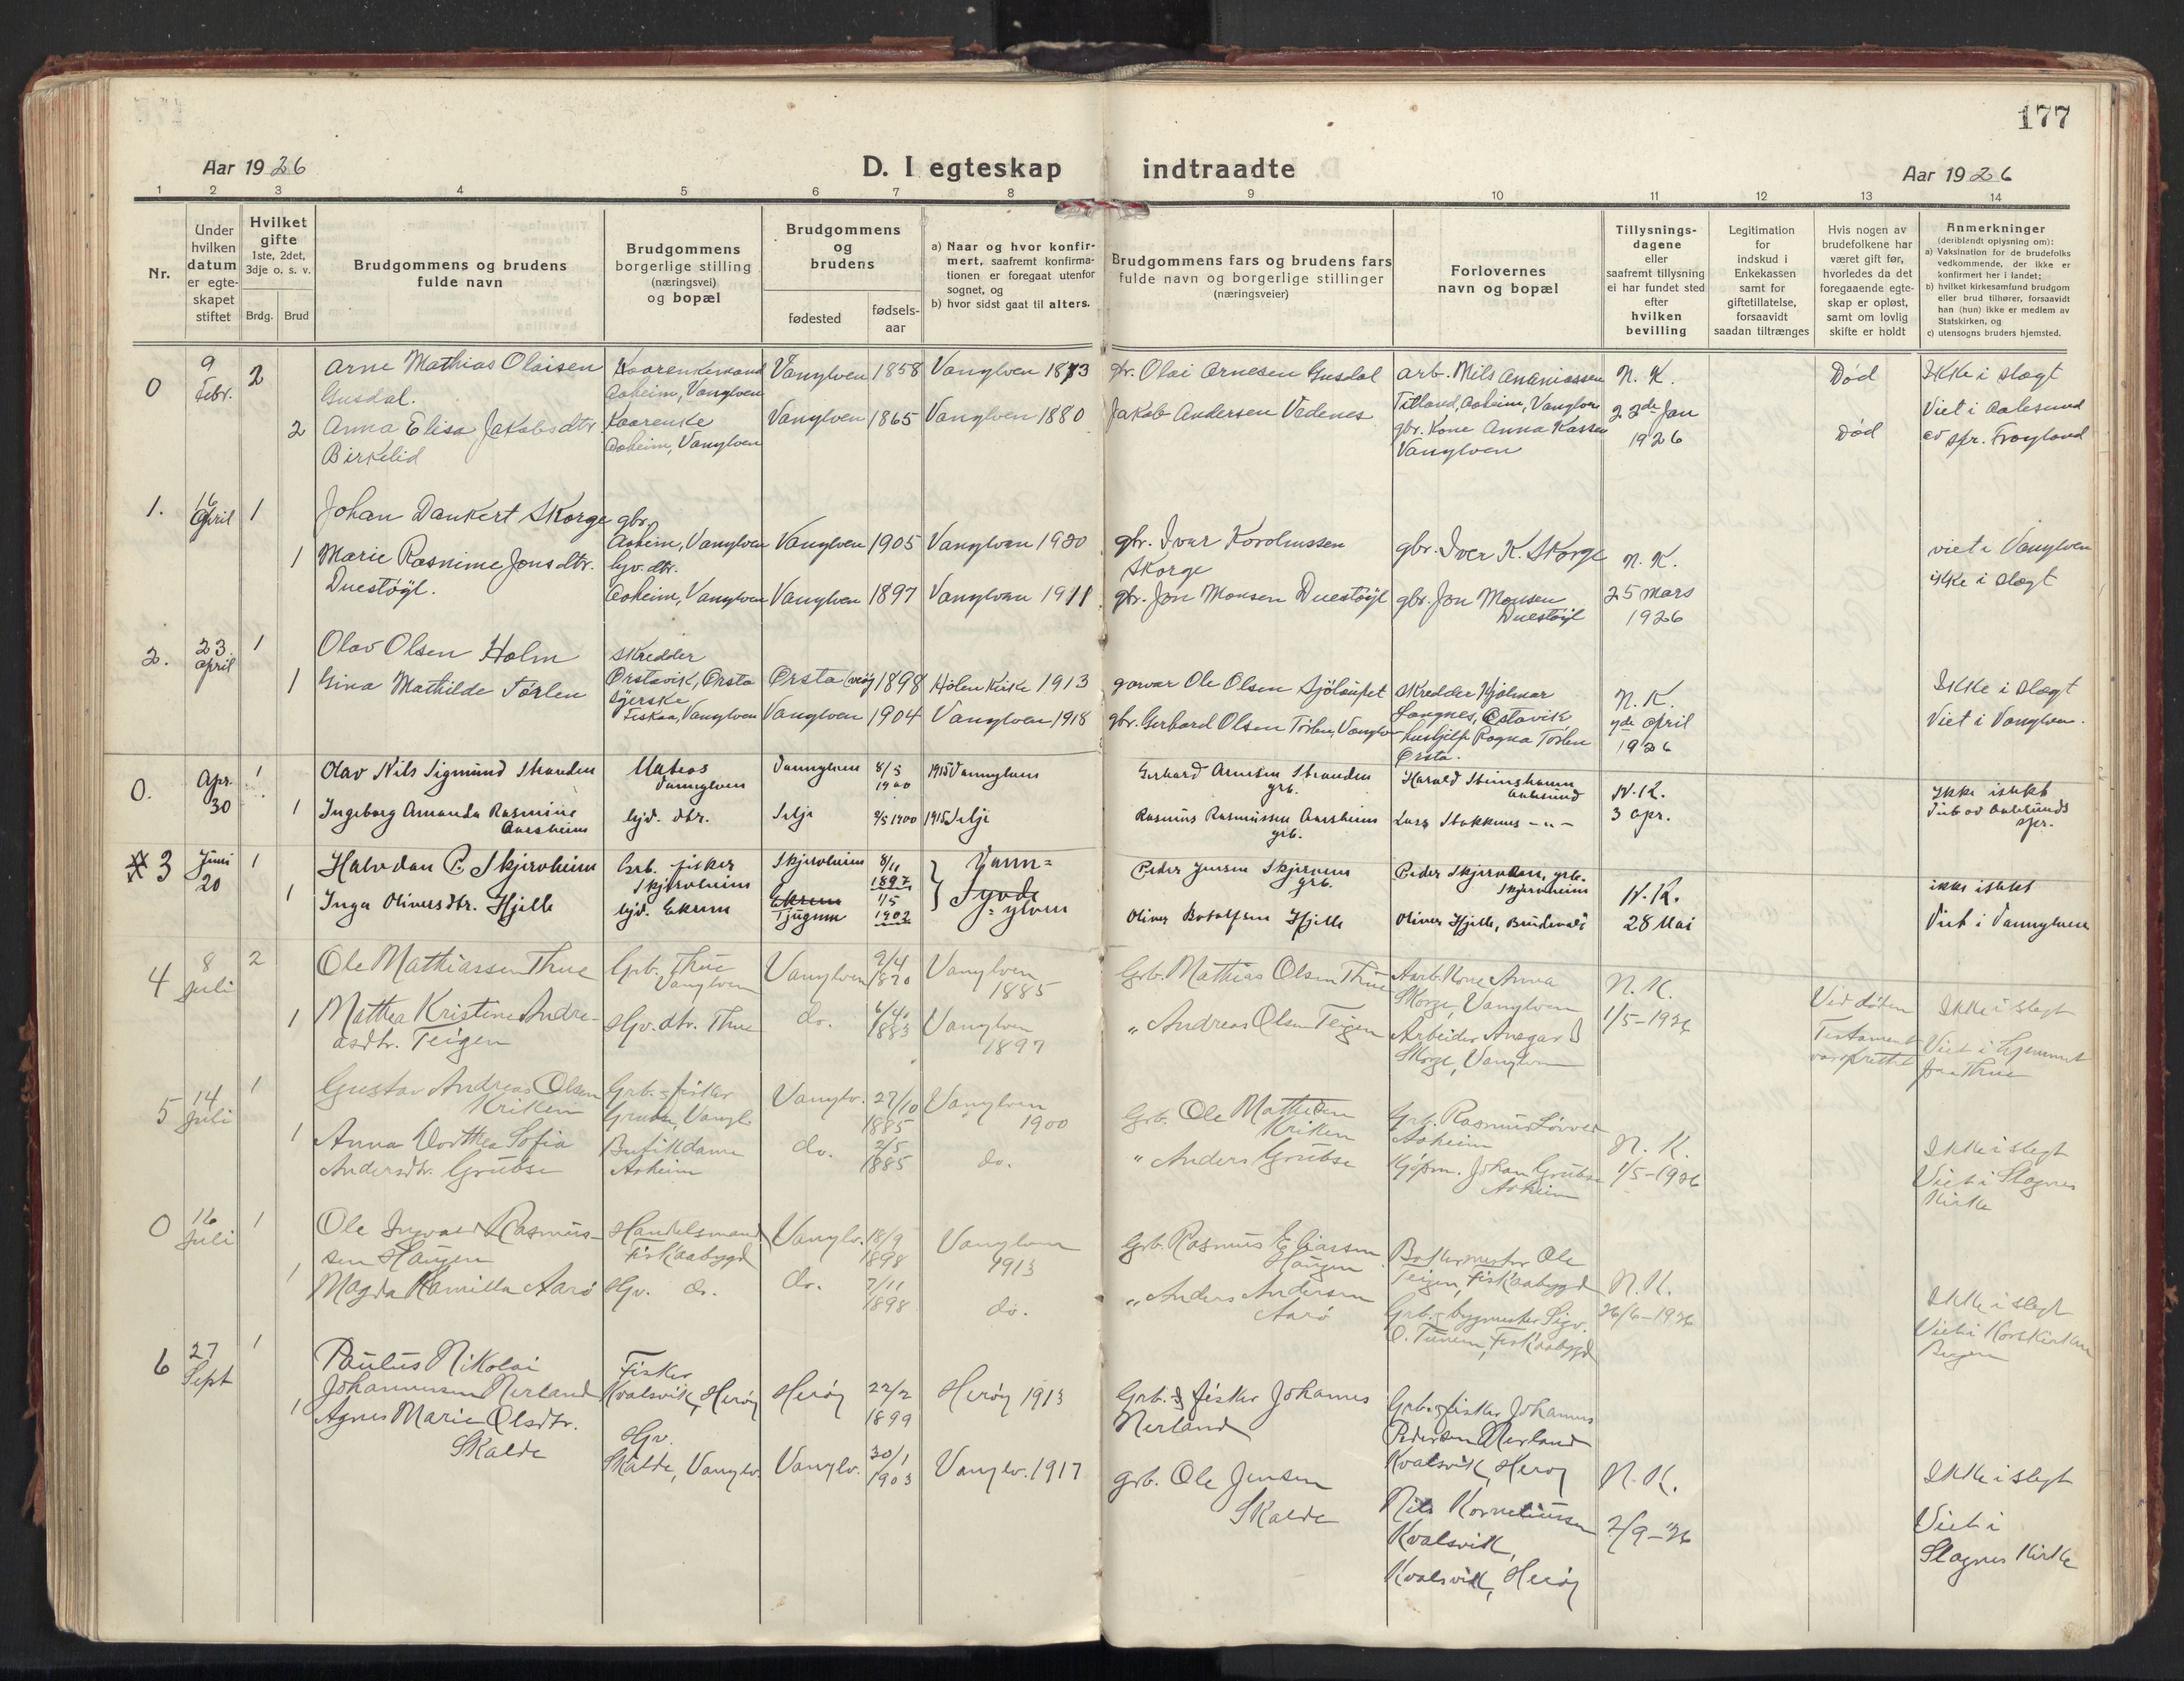 177
Aar 1926
D. I egteskap indtraadte
Aar 1926
1 2 3 4 5 6 7 8 9 10 11 12 13 14
Nr.
Under hvilken datum er egte-skapet stiftet
Hvilket gifte 1ste, 2det, 3dje o. s. v.
Brdg. Brud
Brudgommens og brudens fulde navn
Brudgommens borgerlige stilling (næringsvei) og bopæl
Brudgommens og brudens
fødested
fødsels-aar
a) Naar og hvor konfir-mert, saafremt konfirma-tionen er foregaat utenfor sognet, og
b) hvor sidst gaat til alters.
Brudgommens fars og brudens fars fulde navn og borgerlige stillinger (næringsveier)
Forlovernes navn og bopæl
Tillysnings-dagene eller saafremt tillysning ei har fundet sted efter hvilken bevilling
Legitimation for indskud i Enkekassen samt for giftetillatelse, forsaavidt saadan tiltrænges
Hvis nogen av brudefolkene har været gift før, hvorledes da det foregaaende egte-skap er opløst, samt om lovlig skifte er holdt
Anmerkninger (deriblandt oplysning om):
a) Vaksination for de brudefolks vedkommende, der ikke er konfirmert her i landet;
b) hvilket kirkesamfund brudgom eller brud tilhører, forsaavidt han (hun) ikke er medlem av Statskirken, og
c) utensogns bruders hjemsted.
0 9 Febr. 2 Arne Mathias Olaisen Gusdal. Aaheim, Vanylven Vanylven 1858 Vanylven 1873 Olai Arnesen Gusdal arb. Nils Ananiassen Aaheim, N. K. Død Ikke i slægt
2 Anna Elisa Jakobsdtr. Birkelid Kaarenke Aaheim, Vanylven Vanylven 1865 Vanylven 1880 Jakob Andersen Vedenes gbr. Kone Anna Vanylven 22de Jan 1926 Død Viet i Aalesund av spr. Frøyland
1. 16 April 1 Johan Dankert Skorge gbr. Aaheim, Vanylven Vanylven 1905 Vanylven 1920 gbr. Ivar Karolussen Skorge gbr. Iver K. Skorge N. K. viet i Vanylven
1 Marie Rasmine Jonsdtr. Duestøyl. hjv. dtr. Aaheim, Vanylven Vanylven 1897 Vanylven 1911 gbr. Jon Monsen Duestøyl gbr. Jon Monsen Duestøyl 25 mars 1926 ikke i slægt
2. 23 april 1 Olav Olsen Holm Skredder Ørstavik, Ørsta Ørsta 1898 Kirke 1913 Ole Olsen Skredder Hjalmar N. K. Ikke i slægt
1 Gina Mathilde Tørlen Syerske Fiskaa, Vanylven Vanylven 1904 Vanylven 1918 gbr. Gerhard Olsen Tørlen, hushjelp Ragna Tørlen Ørsta. april 1926 Viet i Vanylven.
0. Apr. 30 1 Olav Nils Sigmund Stranden Matros Vannylven Vannylven 8/5 1900 1915 Vannylven Gerhard Arnesen Stranden grb. Harald Aalesund N.K. Ikke i slekt
1 Ingeborg Amanda Rasmine Aarsheim hjv. dtr. Selje 1900 1915 Selje Rasmus Rasmussen Aarsheim grb. Lars Stokknes - „ - 3 apr. Viet av Aalesunds spr.
3 Juni 20 1 Halvdan P. Skjervheim Grb. fisker Skjervheim Skjervheim 8/11 1897 Vann= Peder Jensen Skjervem grb. Peder grb. Skjervheim N.K. ikke i slekt
1 Inga Oliversdtr. Hjelle hjv. Ekrem Ekrem 1/5 1902 Syvde =ylven Oliver Botolfsen Hjelle Oliver Hjelle, 28 Mai Viet i Vannylven
4 8 Juli 2 Ole Mathiassen Thue Grb. Thue Vanylven Vanylven 2/4 1870 Vanylven 1885 Grb. Mathias Olsen Thue Kone Anna Skorge, Vanylven N. K. Ved døden Ikke i slegt
1 Mathea Kristine Andreasdtr. Teigen Hjv. dtr. Thue do. 6/4 1883 Vanylven 1897 „ Andreas Olsen Teigen Arbeider Ansgar Skorge, Vanylven 1/5-1926 Testament var oprettet Viet i hjemmet paa Thue
5 14 Juli 1 Gustav Andreas Olsen Kriken Grb. - fisker Vanylv. 27/10 1885 Vanylven 1900 Grb. Ole Kriken Grb. Rasmus Aaheim N. K. Ikke i slegt
1 Anna Dorthea Sofia Andersdtr. Grubse Butikdame Aaheim do. 2/5 1885 do. „ Anders Grubse Kjøpm. Johan Grubse Aaheim 1/5-1926 Viet i Slagnes Kirke
0 16 Juli 1 Ole Ingvald Rasmus-sen Haugen Handelsmand Fiskaabygd Vanylv. 18/9 1898 Vanylven 1913 Grb. Rasmus Eliassen Haugen Ole Teigen, Fiskaabygd N. K. Ikke i slegt
1 Magda Kamilla Aarø Hjv. do. do. 7/11 1898 do. „ Anders Andersen Aarø Grb. - bygmester Sigv. O. Tunem, Fiskaabygd 26/6-1926 Viet i Korskirken Bergen
6 27 Sept 1 Paulus Nikolai Johannessen Nerland Fisker Kvalsvik, Herøy Herøy 22/2 1899 Herøy 1913 Grb. & fisker Johannes Nerland Grb. - fisker Johannes Pedersen Nerland Kvalsvik, Herøy N. K. Ikke i slegt
1 Agnes Marie Olsdtr. Skalde Hjv. Skalde, Vanylv. Vanylv. 30/1 1903 Vanylv. 1917 grb. Ole Jensen Skalde Nils Korneliussen Kvalsvik, Kvalsvik, Herøy 2/9-'26 Viet i Slagnes Kirke